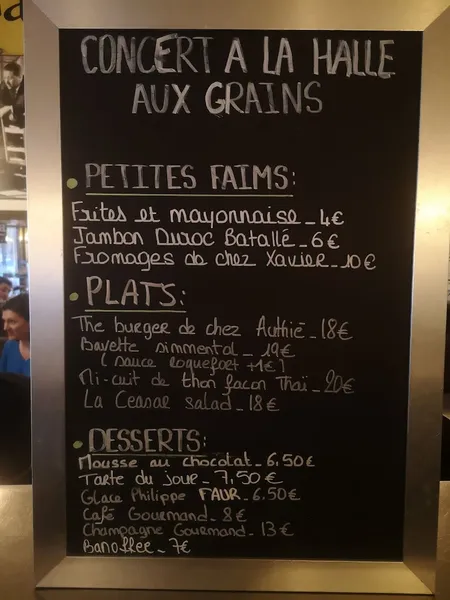 CONCERT A LA HALLE
AUX GRAINS
PETITES FAIMS:
Frites et mayonnaise_4€
Jambon Duroc Batallé_6€
Fromages de chez Xavier_10€
PLATS:
The burger de chez Authié_18€
Bavette simmental_19€
(sauce roquefort +1€)
Mi-cuit de thon façon Thaï_20€
La Ceasar salad_18€
DESSERTS:
Mousse au chocolat_6,50€
Tarte du jour_7,50€
Glace Philippe FAUR_6.50€
Café Gourmand_8€
Champagne Gourmand_13€
Banoffee_7€